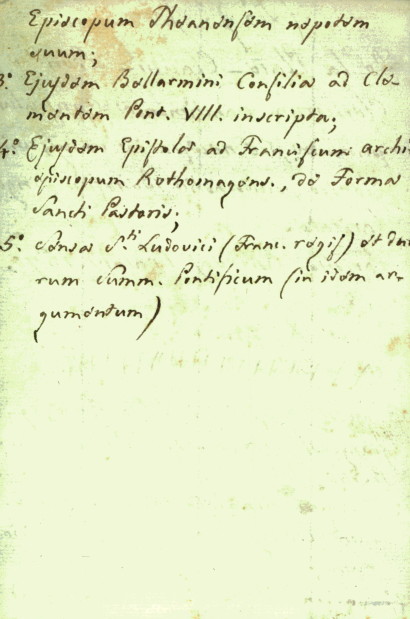 Episcopum Theanensem nepotem
suum;
3.° Ejusdem Bellarmini Consilia ad Cle-
mentem Pont. VIII. inscripta;
4.° Ejusdem Epistola ad Franciscum archi
episcopum Rothomagens., de Forma
Sancti Pastoris;
5.° Sensa S.ti Ludovici (Franc. regis) et
rum Summ. Pontificum (in idem ar-
gumentum)